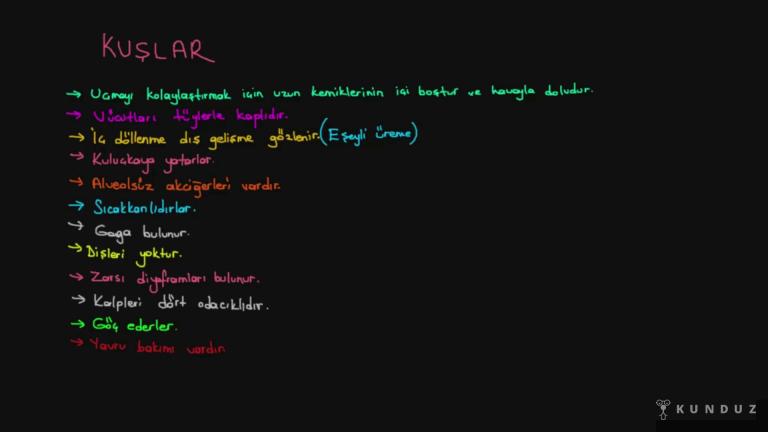 KUŞLAR
→ Uçmayı kolaylaştırmak için uzun kemiklerinin içi boştur ve havayla doludur.
→ Vücutları tüylerle kaplıdır.
→ İç döllenme dış gelişme gözlenir. (Eşeyli üreme)
→ Kuluçkaya yatarlar.
→ Alveolsüz akciğerleri vardır.
→ Sıcakkanlıdırlar.
→ Gaga bulunur.
→ Dişleri yoktur.
→ Zarsı diyaframları bulunur.
→ Kalpleri dört odacıklıdır.
→ Göç ederler.
→ Yavru bakımı vardır.
KUNDUZ